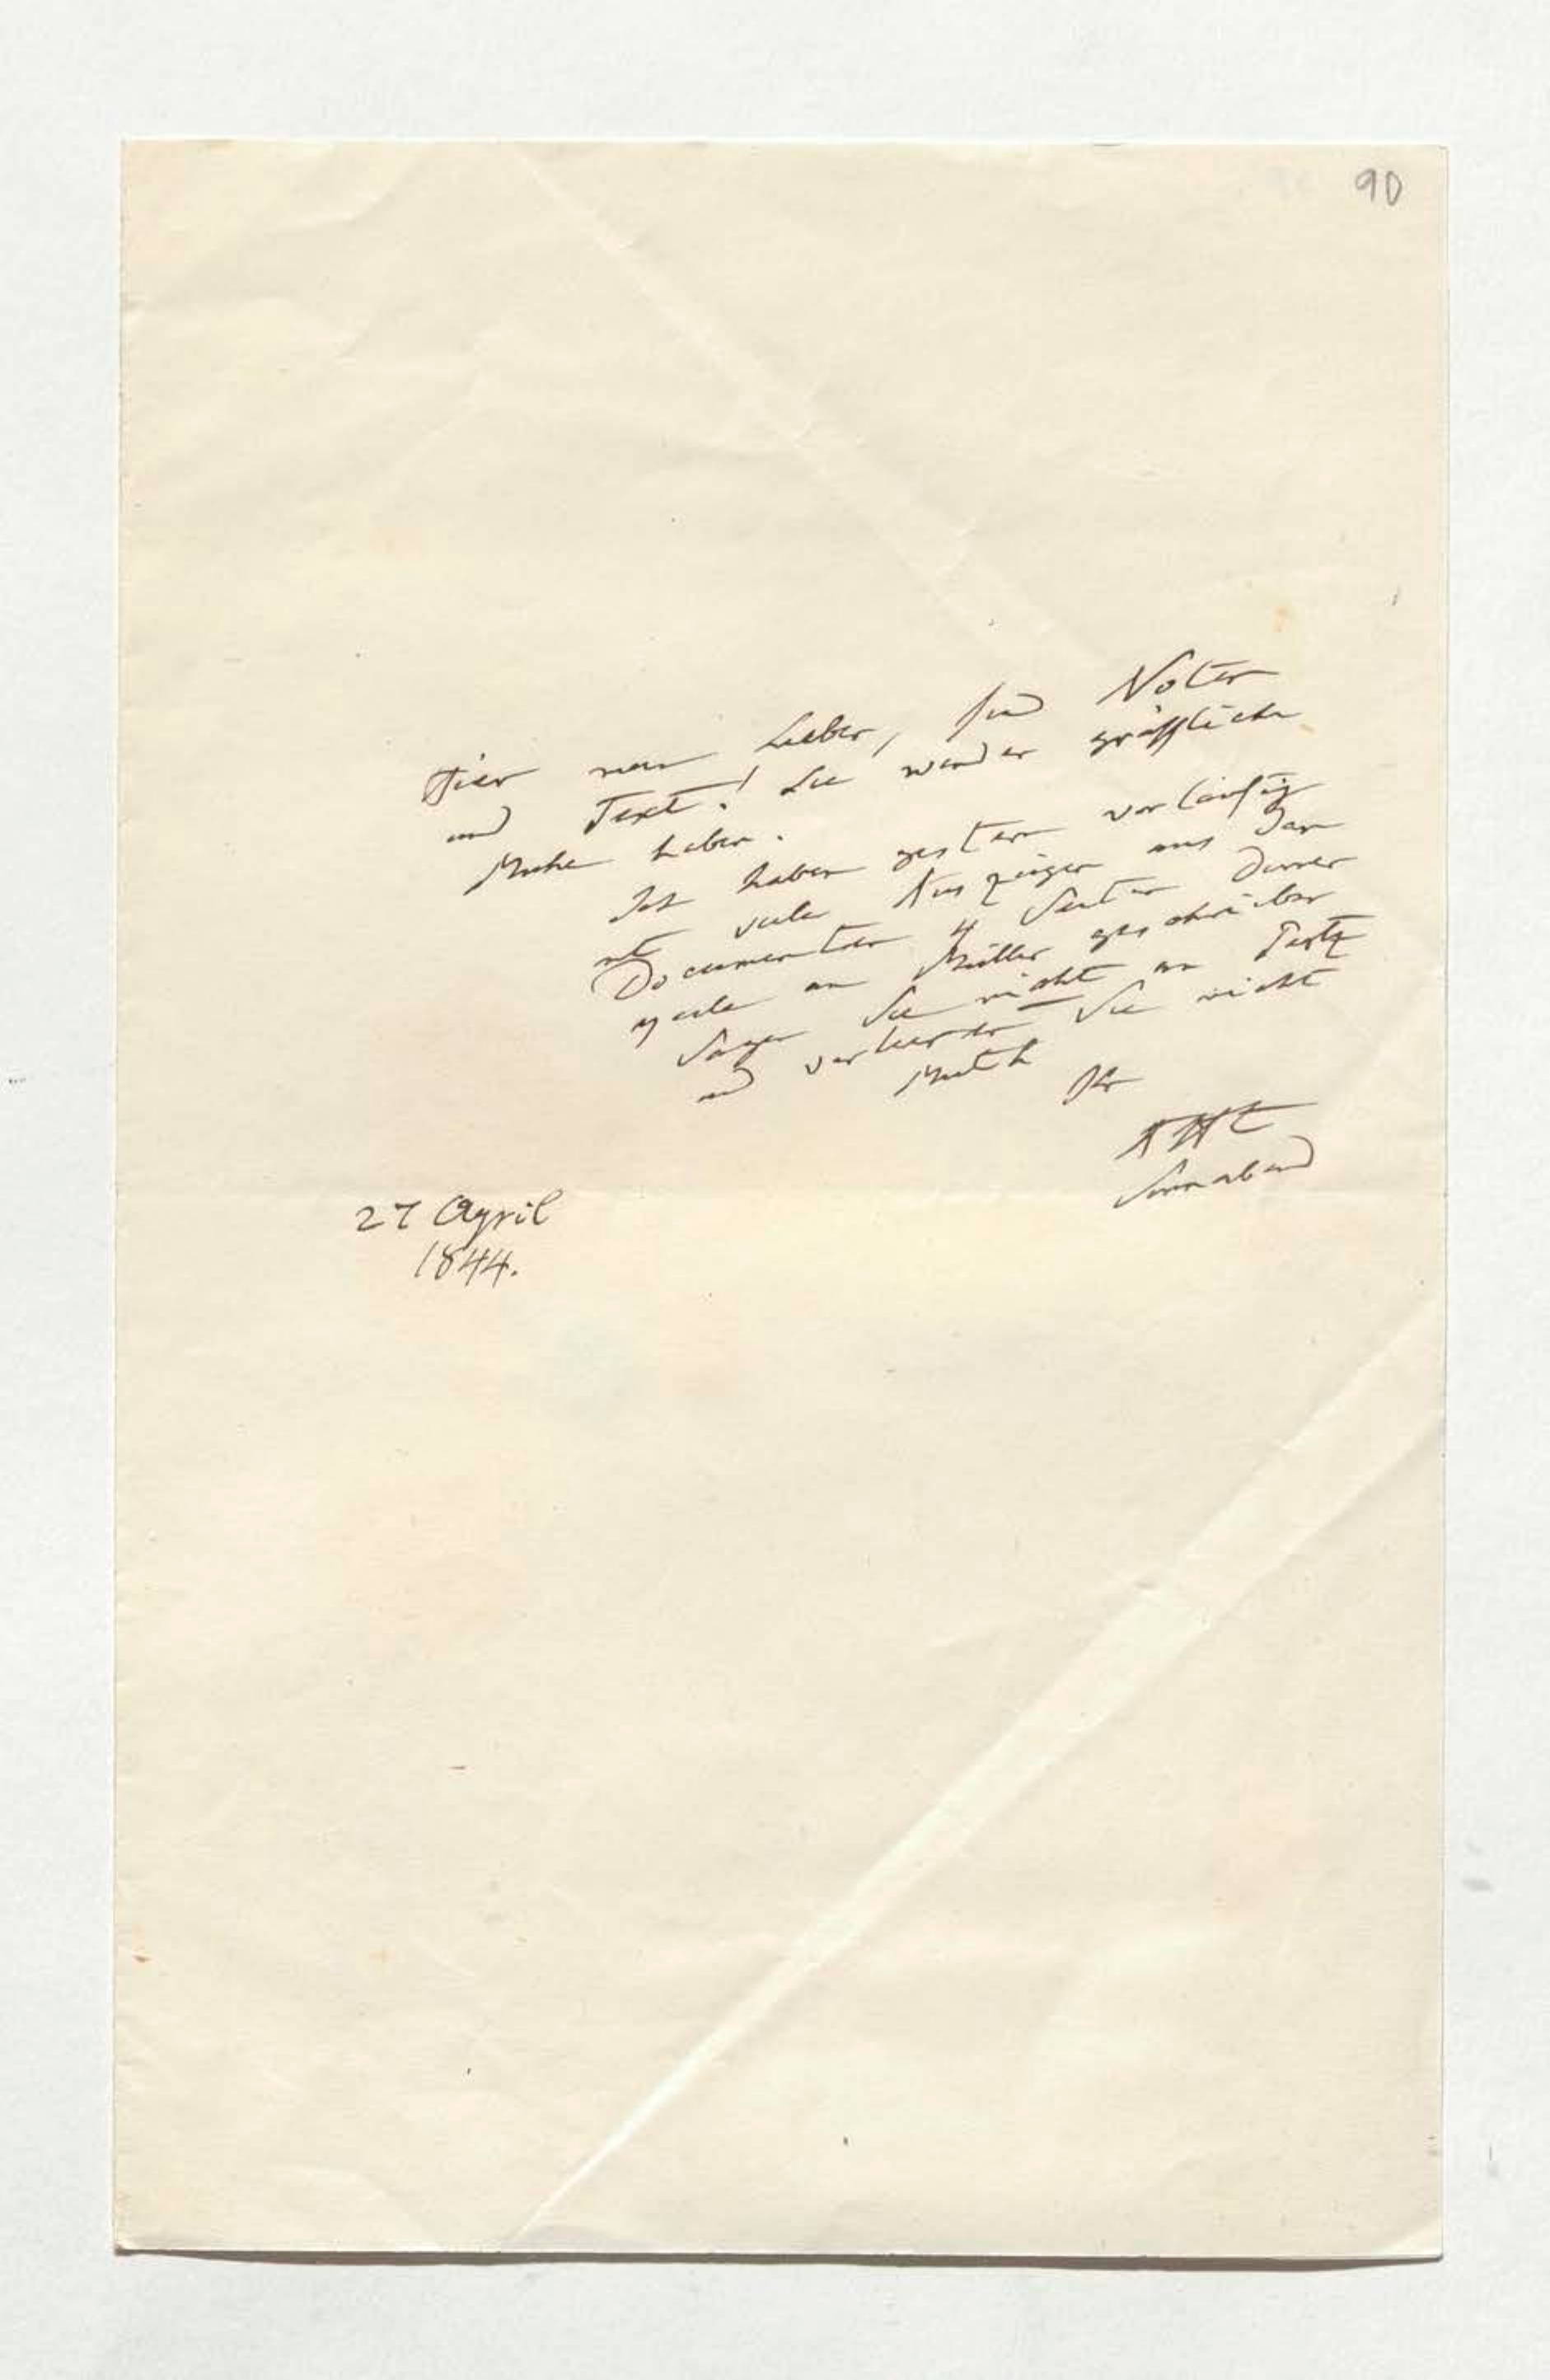 90
Hier mein Lieber, sind Noten
und Text! Sie werden grässliche
Mühe haben.
Ich habe gestern vorläufig
mit viele Auszügen aus den
Documenten 4 Seiten
an Müller geschrieben
Sagen Sie nicht an
und verlieren Sie nicht
Muth Ihr
AHt
Sonnabend
27 April
1844.